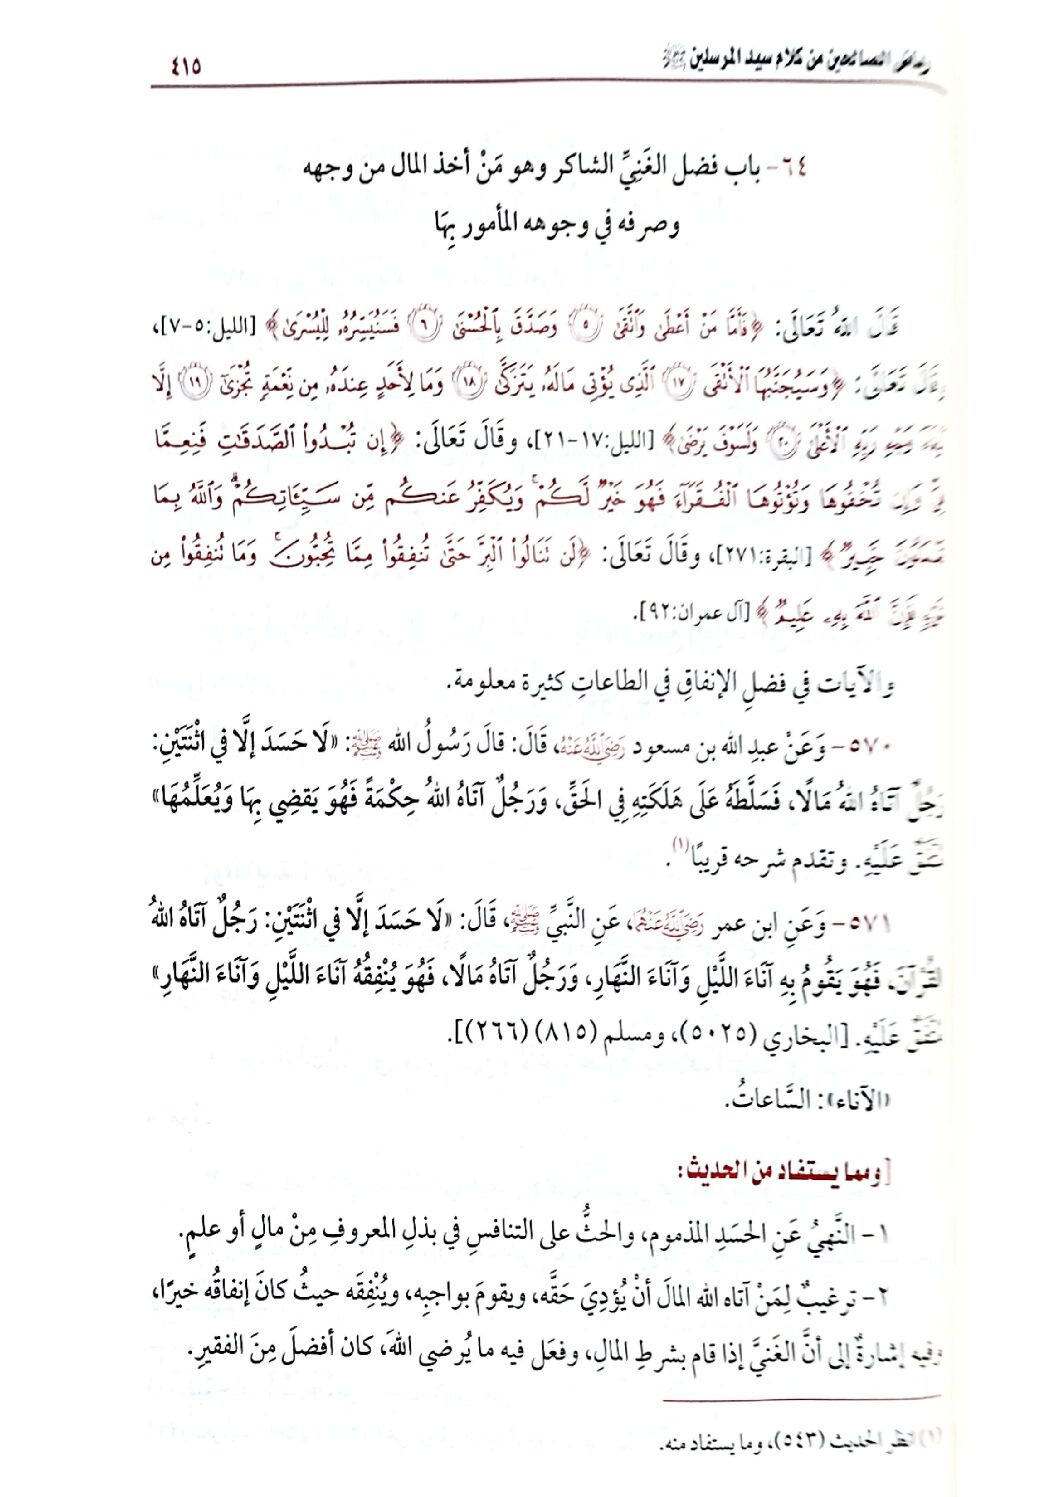 رياض الصالحين من كلام سيد المرسلين ﷺ ٤١٥
٦٤- باب فضل الغَنِيِّ الشاكر وهو مَنْ أخذ المال من وجهه
وصرفه في وجوهه المأمور بِهَا
قَالَ اللهُ تَعَالَى: ﴿فَأَمَّا مَنْ أَعْطَىٰ وَٱتَّقَىٰ ۝٥ وَصَدَّقَ بِٱلْحُسْنَىٰ ۝٦ فَسَنُيَسِّرُهُۥ لِلْيُسْرَىٰ﴾ [الليل:٥-٧]،
وقَالَ تَعَالَى: ﴿وَسَيُجَنَّبُهَا ٱلْأَتْقَى ۝١٧ ٱلَّذِى يُؤْتِى مَالَهُۥ يَتَزَكَّىٰ ۝١٨ وَمَا لِأَحَدٍ عِندَهُۥ مِن نِّعْمَةٍ تُجْزَىٰٓ ۝١٩ إِلَّا
ٱبْتِغَآءَ وَجْهِ رَبِّهِ ٱلْأَعْلَىٰ ۝٢٠ وَلَسَوْفَ يَرْضَىٰ﴾ [الليل:١٧-٢١]، وقَالَ تَعَالَى: ﴿إِن تُبْدُوا۟ ٱلصَّدَقَـٰتِ فَنِعِمَّا
هِىَ وَإِن تُخْفُوهَا وَتُؤْتُوهَا ٱلْفُقَرَآءَ فَهُوَ خَيْرٌ لَّكُمْ ۚ وَيُكَفِّرُ عَنكُم مِّن سَيِّـَٔاتِكُمْ ۗ وَٱللَّهُ بِمَا
تَعْمَلُونَ خَبِيرٌ﴾ [البقرة:٢٧١]، وقَالَ تَعَالَى: ﴿لَن تَنَالُوا۟ ٱلْبِرَّ حَتَّىٰ تُنفِقُوا۟ مِمَّا تُحِبُّونَ ۚ وَمَا تُنفِقُوا۟ مِن
شَىْءٍ فَإِنَّ ٱللَّهَ بِهِۦ عَلِيمٌ﴾ [آل عمران:٩٢].
والآيات في فضلِ الإنفاقِ في الطاعاتِ كثيرة معلومة.
٥٧٠- وَعَنْ عبدِ الله بن مسعود رَضِيَ اللهُ عَنْهُ، قَالَ: قالَ رَسُولُ الله ﷺ: «لَا حَسَدَ إلَّا في اثْنَتَيْنِ:
رَجُلٌ آتَاهُ اللهُ مَالًا، فَسَلَّطَهُ عَلَى هَلَكَتِهِ فِي الحَقِّ، وَرَجُلٌ آتَاهُ اللهُ حِكْمَةً فَهُوَ يَقضِي بِهَا وَيُعَلِّمُهَا»
مُتَّفَقٌ عَلَيْهِ. وتقدم شرحه قريبًا(١).
٥٧١- وَعَنِ ابن عمر رَضِيَ اللهُ عَنْهُمَا، عَنِ النَّبيِّ ﷺ، قَالَ: «لَا حَسَدَ إلَّا في اثْنَتَيْنِ: رَجُلٌ آتَاهُ اللهُ
القُرْآنَ، فَهُوَ يَقُومُ بِهِ آنَاءَ اللَّيْلِ وَآنَاءَ النَّهَارِ، وَرَجُلٌ آتَاهُ مَالًا، فَهُوَ يُنْفِقُهُ آنَاءَ اللَّيْلِ وَآنَاءَ النَّهَارِ»
مُتَّفَقٌ عَلَيْهِ. [البخاري (٥٠٢٥)، ومسلم (٨١٥) (٢٦٦)].
«الآناء»: السَّاعاتُ.
[ومما يستفاد من الحديث:
١- النَّهيُ عَنِ الحَسَدِ المذموم، والحثُّ على التنافسِ في بذلِ المعروفِ مِنْ مالٍ أو علمٍ.
٢- ترغيبٌ لِمَنْ آتاه الله المالَ أنْ يُؤدِيَ حَقَّه، ويقومَ بواجبِه، ويُنْفِقَه حيثُ كانَ إنفاقُه خيرًا،
وفيه إشارةٌ إلى أنَّ الغَنيَّ إذا قام بشرطِ المالِ، وفعَل فيه ما يُرضي اللهَ، كان أفضلَ مِنَ الفقيرِ.
(١) انظر الحديث (٥٤٣)، وما يستفاد منه.